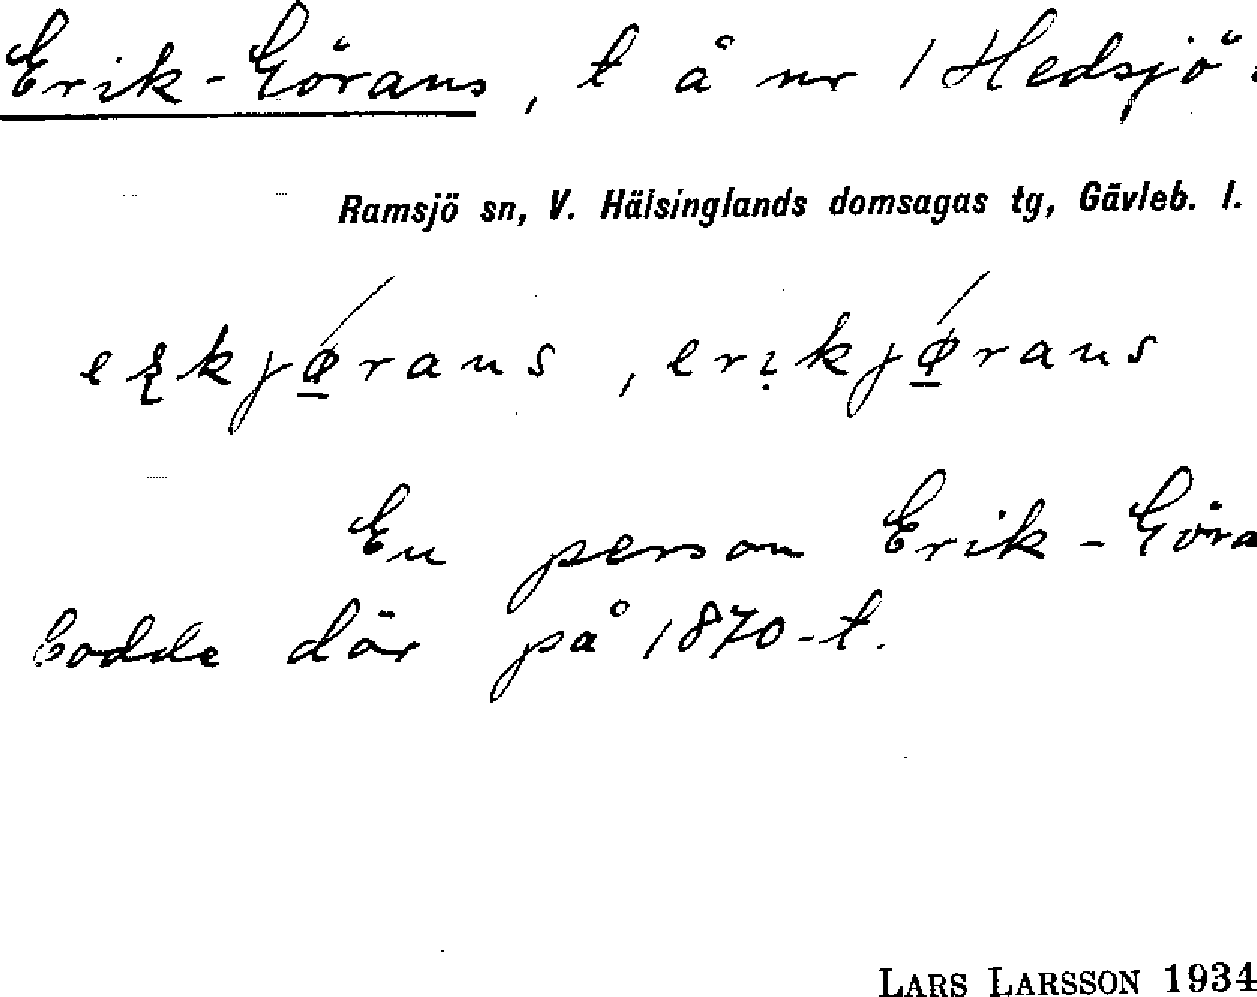 Erik-Görans, t å nr 1 Hedsjö
Ramsjö sn, V. Hälsinglands domsagas tg, Gävleb. l.
En person Erik-Göra
bodde där på 1870-t.
LARS LARSSON 1934